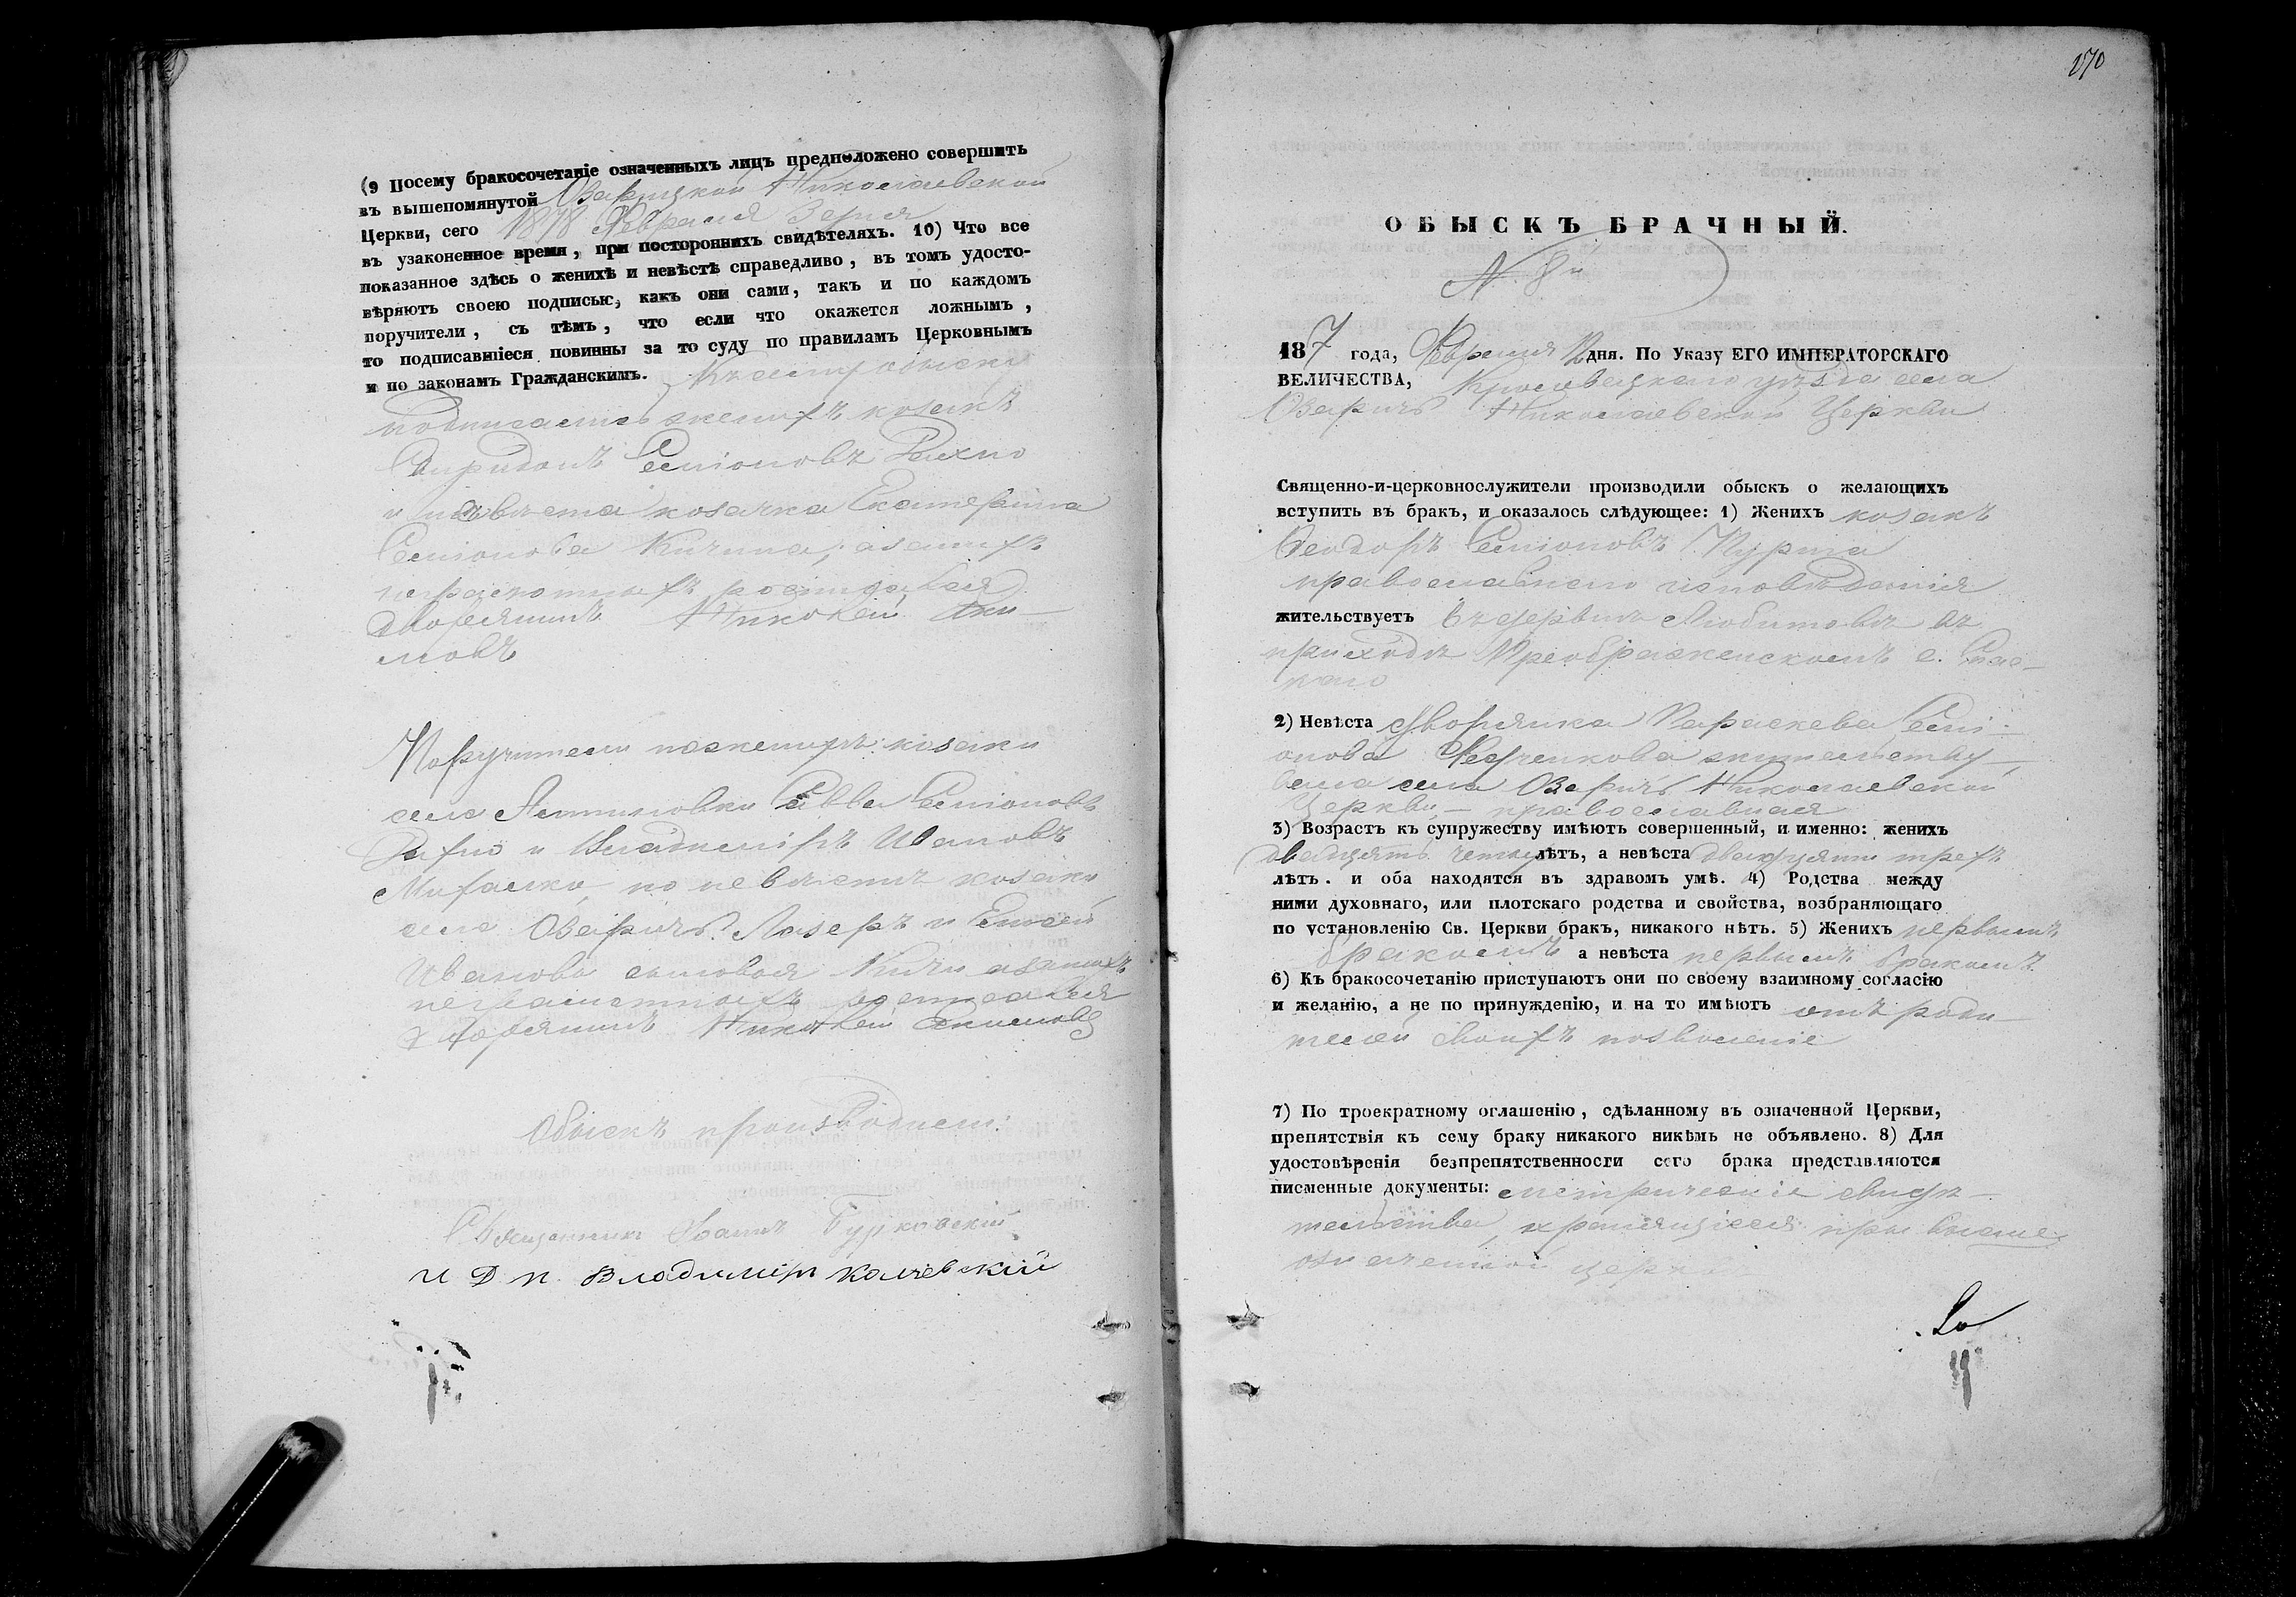 (9 Посему бракосочетаніе означенныхъ лицъ предположено совершить
въ вышепомянутой Озарицкой Николаевской
Церкви, сего 1878 Февраля
въ узаконенное время, при постороннихъ свидѣтеляхъ. 10) Что все
показанное здѣсь о женихѣ и невѣстѣ справедливо, въ томъ удосто-
вѣряютъ своею подписью, какъ они сами, такъ и по каждомъ
поручители, съ тѣмъ, что если что окажется ложнымъ,
то подписавшіеся повинны за то суду по правиламъ Церковнымъ
и по законамъ Гражданскимъ. Къ сему обыску
подписались женихъ козакъ
Спиридонъ Семіоновъ
и невѣста козачка Екатерина
Семіонова Кичина, а за нихъ
неграмотныхъ росписался
дворянинъ Николай Аки-
мовъ
Поручители по женихѣ: козаки
села Савва Семіоновъ
и Владиміръ Ивановъ
по невѣстѣ козаки
села Озаричъ Лазарь и
Ивановы сыновья а за нихъ
неграмотныхъ росписался
дворянинъ Николай Акимовъ
Обыскъ производили:
Священникъ Іоаннъ Бурковскій
И Д п. Владиміръ
170
ОБЫСКЪ БРАЧНЫЙ.
N. 8й
187 года, Февраля 12 дня. По Указу ЕГО ИМПЕРАТОРСКАГО
ВЕЛИЧЕСТВА, Кролевецкаго уѣзда села
Озаричъ Николаевской Церкви
Священно-и-церковнослужители производили обыскъ о желающихъ
вступить въ бракъ, и оказалось слѣдующее: 1) Женихъ козакъ
Феодоръ Семіоновъ
православнаго исповѣданія
жительствуетъ въ деревнѣ Любитовѣ въ
приходѣ Преображенскомъ с. Спас-
каго
2) Невѣста дворянка Параскева Семі-
онова жительству-
села Озаричъ Николаевской
Церкви, православная
3) Возрастъ къ супружеству имѣютъ совершенный, и именно: женихъ
двадцять четыре лѣтъ, а невѣста двадцяти трехъ
лѣтъ. и оба находятся въ здравомъ умѣ. 4) Родства между
ними духовнаго, или плотскаго родства и свойства, возбраняющаго
по установленію Св. Церкви бракъ, никакого нѣтъ. 5) Женихъ первымъ
бракомъ а невѣста первымъ бракомъ.
6) Къ бракосочетанію приступаютъ они по своему взаимному согласію
и желанію, а не по принужденію, и на то имѣютъ отъ роди-
телей своихъ позволеніе
7) По троекратному оглашенію, сдѣланному въ означенной Церкви,
препятствія къ сему браку никакого никѣмъ не объявлено. 8) Для
удостовѣренія безпрепятственности сего брака представляются
писменные документы: метрическіе свидѣ-
тельства, хранящіеся при выше-
означенной церкви